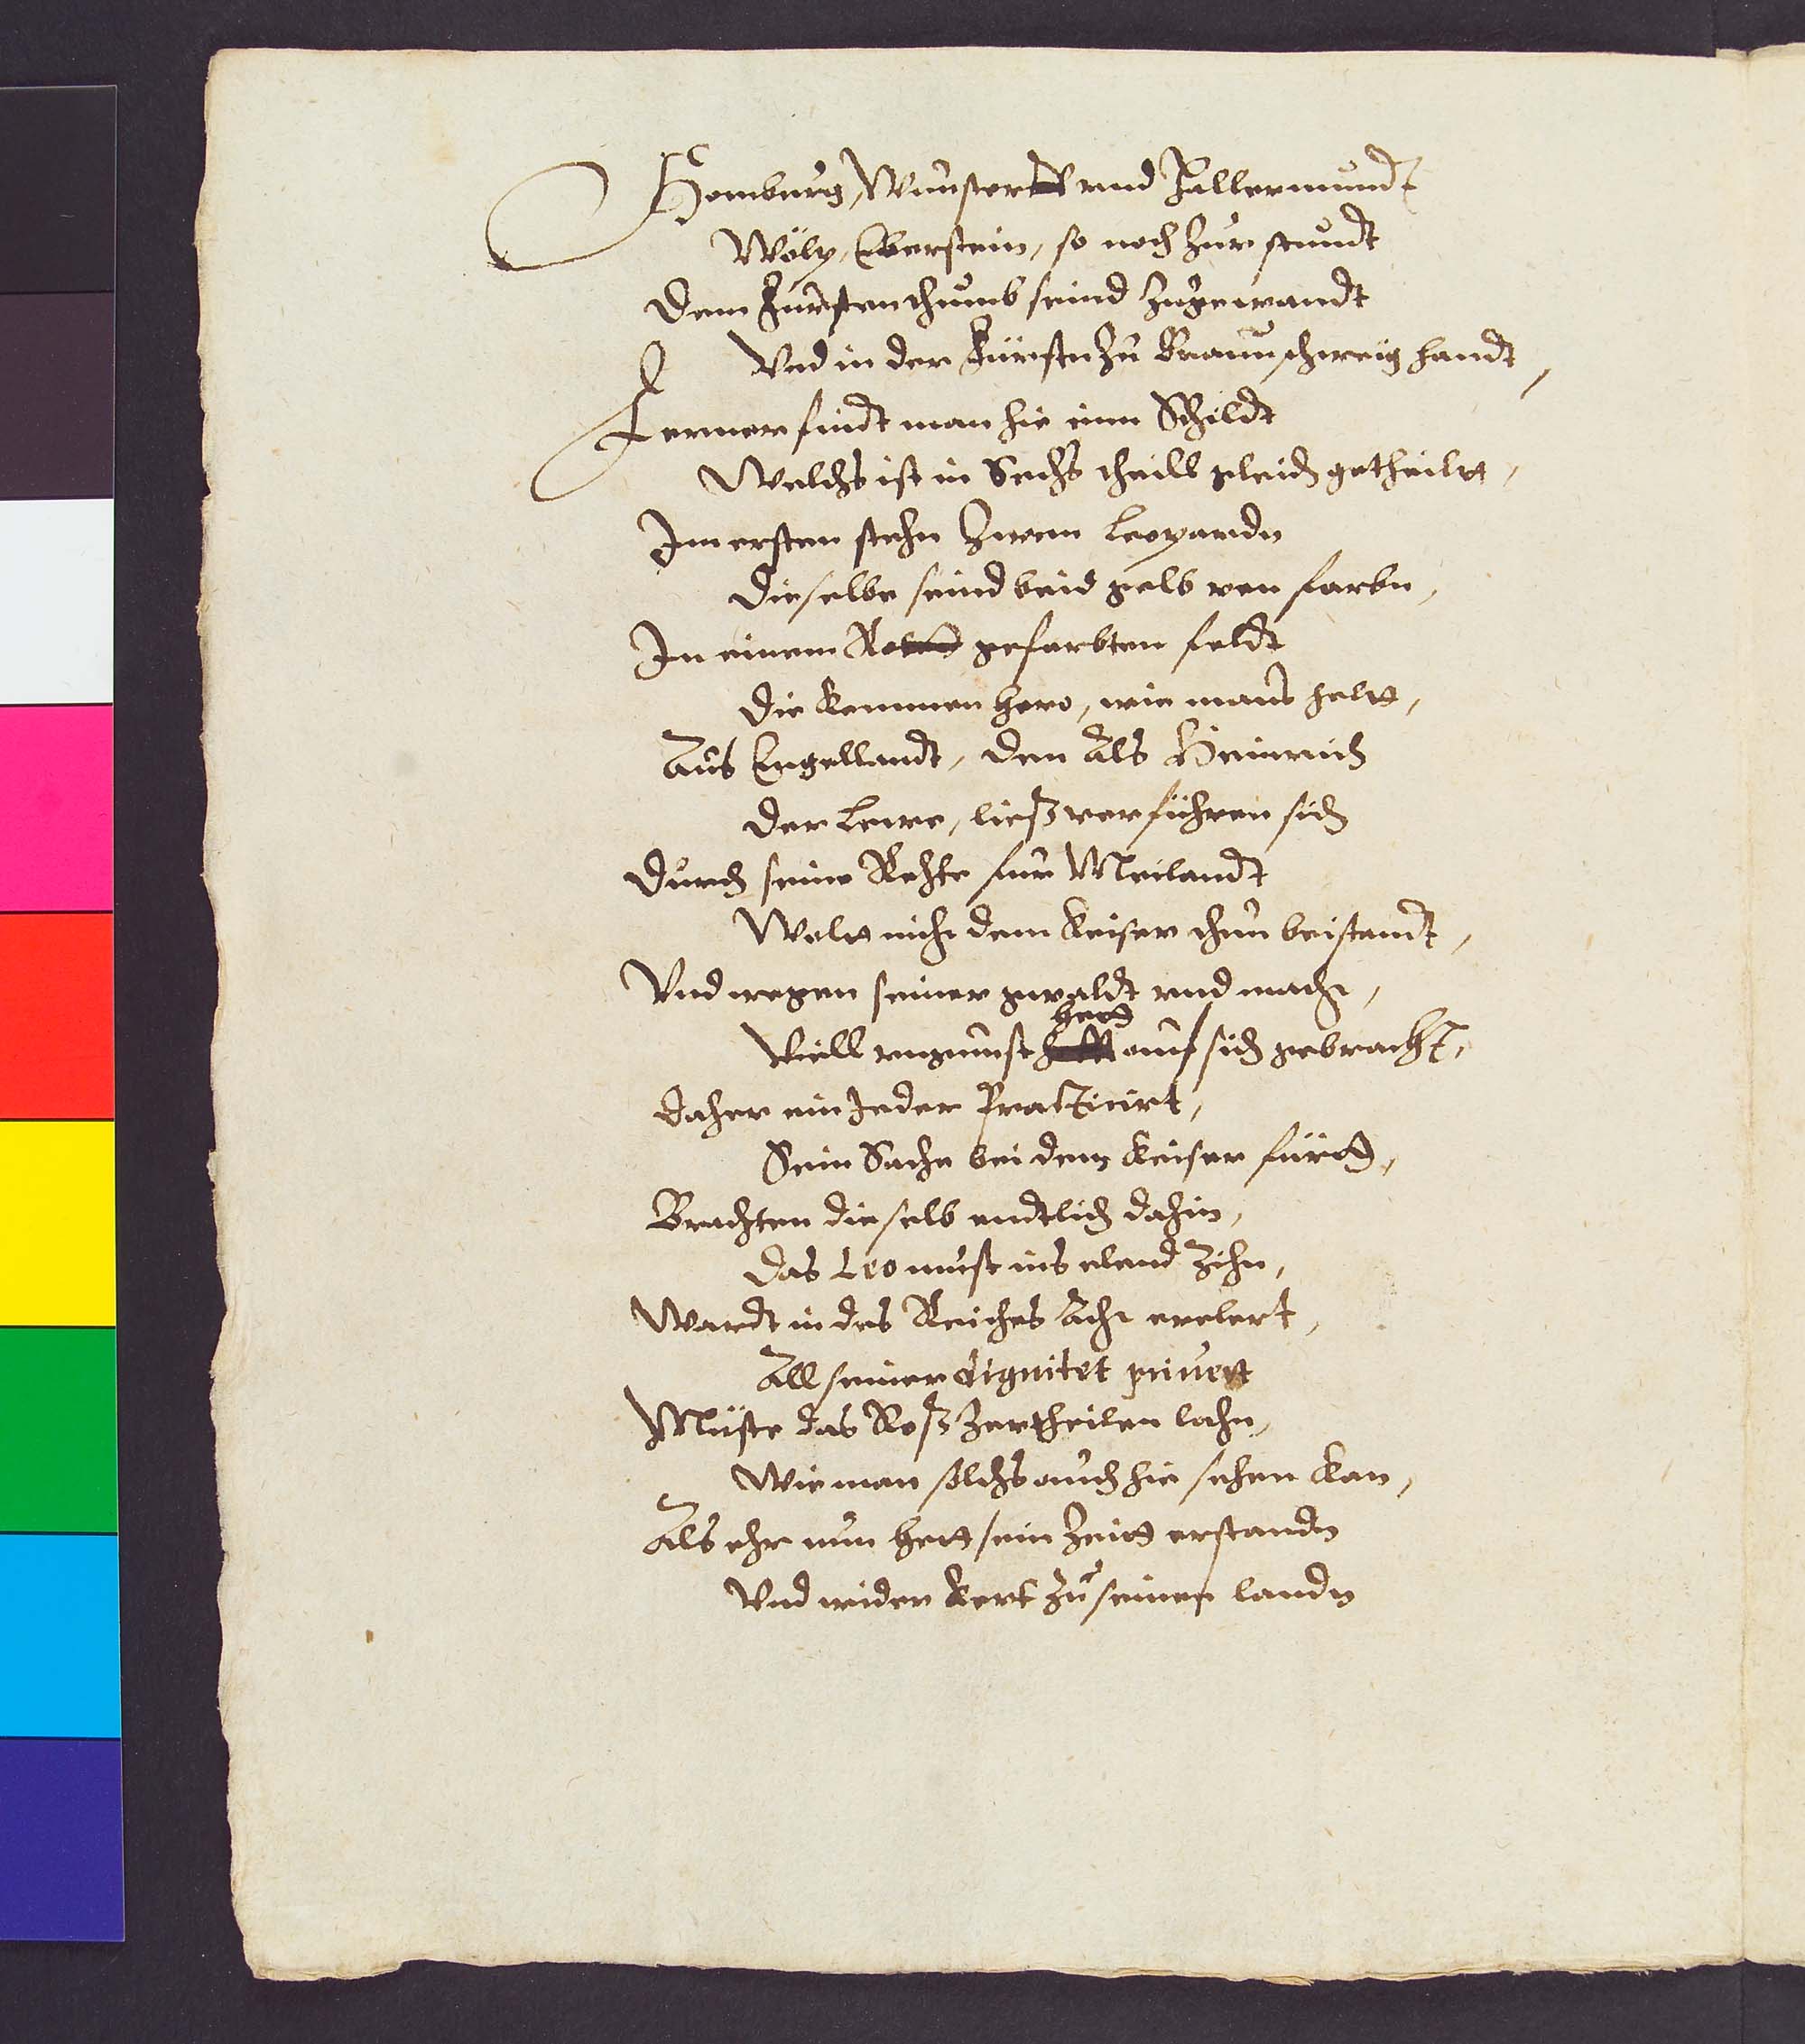 Homburg, Wunstorff vnd Hallermundt
Wölp, Eberstein, so noch zur stundt
Dem Fürstenthumb seind zugewandt
Vnd in der Fürstn zu Braunschweig handt,
Ferner findt man hie einn Schildt
Welchs ist in Sechs theill gleich getheilt,
Im ersten stehn zween Leopardn
Dieselbe seind beid gelb von farbn,
In einem gefarbten feldt
Die kommen hero, wie mans helt,
Aus Engellandt, den als Heinrich
Der Lewe, ließ verführen sich
Durch seine Rehte für Meilandt
Wolt nicht dem Keiser thun beistandt,
Vnd wegen seiner gwaldt vnd macht,
hett
Viell vngunst auf sich gebracht,
Daher ein Jeder Practicirt,
Sein Sache bei dem Keiser fürt,
Brachten dieselb endtlich dahin,
Das Leo must ins elend zihn,
Wardt in des Reiches Acht erclert,
All seiner dignitet privert
Müste das Roß zertheilen lahn,
Wie man solchs auch hie sehen kan,
Als ehr nun hett sein Zeit erstandn
Vnd wider kert zu seinen landn